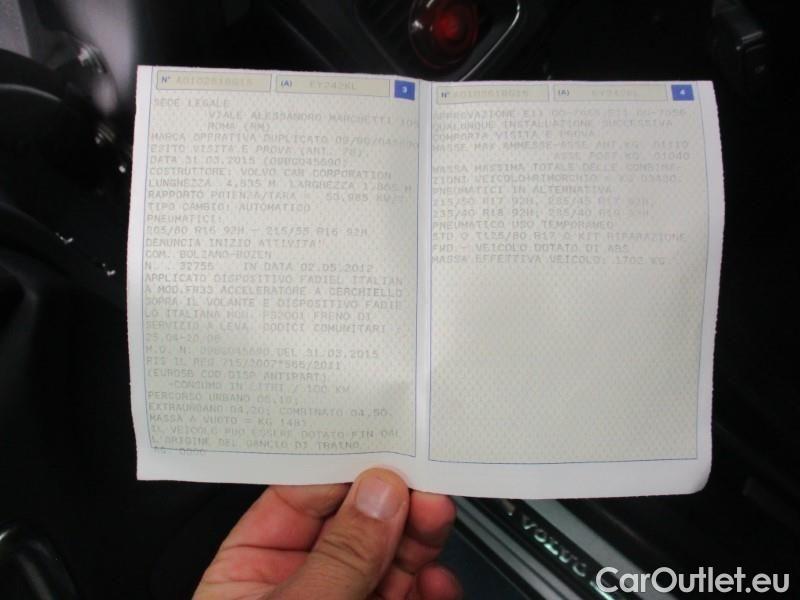 N° A0102618G15 (A) EY242KL 3
SEDE LEGALE
VIALE ALESSANDRO MARCHETTI 105
ROMA (RM)
MARCA OPERATIVA/DUPLICATO
ESITO VISITA E PROVA (ART. 78).
DATA 31.03.2015 (09BG045690)
COSTRUTTORE: VOLVO CAR CORPORATION
LUNGHEZZA 4,635 M LARGHEZZA 1,865 M
RAPPORTO POTENZA/TARA =
TIPO CAMBIO: AUTOMATICO
PNEUMATICI:
205/60 R16 92H - 215/55 R16 92H
DENUNCIA INIZIO ATTIVITA'
COM. BOLZANO-BOZEN
N. . 32755 IN DATA 02.05.2012
APPLICATO DISPOSITIVO FADIEL ITALIAN
A MOD.FR33 ACCELERATORE A CERCHIELLO
SOPRA IL VOLANTE E DISPOSITIVO FADIE
L ITALIANA MOD. PS2001 FRENO DI
SERVIZIO A LEVA. CODICI COMUNITARI :
25.04-20.06
M.O. N. 09BG045690 DEL 31.03.2015
RIS IL REG 715/2007*566/2011
(EURO5B COD DISP ANTIPART)
-CONSUMO IN LITRI / 100 KM
PERCORSO URBANO 05,10;
EXTRAURBANO 04,20; COMBINATO 04,50.
MASSA A VUOTO = KG 1481
IL VEICOLO PUO' ESSERE DOTATO FIN DAL
L'ORIGINE DEL GANCIO DI TRAINO
N° A0102618G15 (A) EY242KL 4
APPROVAZIONE E11 00-7055,E11 00-7056
QUALUNQUE INSTALLAZIONE SUCCESSIVA
COMPORTA VISITA E PROVA
MASSE MAX AMMESSE-ASSE ANT.KG. 01110
ASSE POST.KG. 01040
MASSA MASSIMA TOTALE DELLE COMBINA-
ZIONI VEICOLO+RIMORCHIO = KG 03480.
PNEUMATICI IN ALTERNATIVA
215/50 R17 92H, 235/45 R17 92H,
235/40 R18 92H; 235/40 R19 92H
PNEUMATICO USO TEMPORANEO
STD O T125/80 R17 O KIT RIPARAZIONE
FWD. - VEICOLO DOTATO DI ABS
MASSA EFFETTIVA VEICOLO: 1702 KG.
VOLVO
CarOutlet.eu